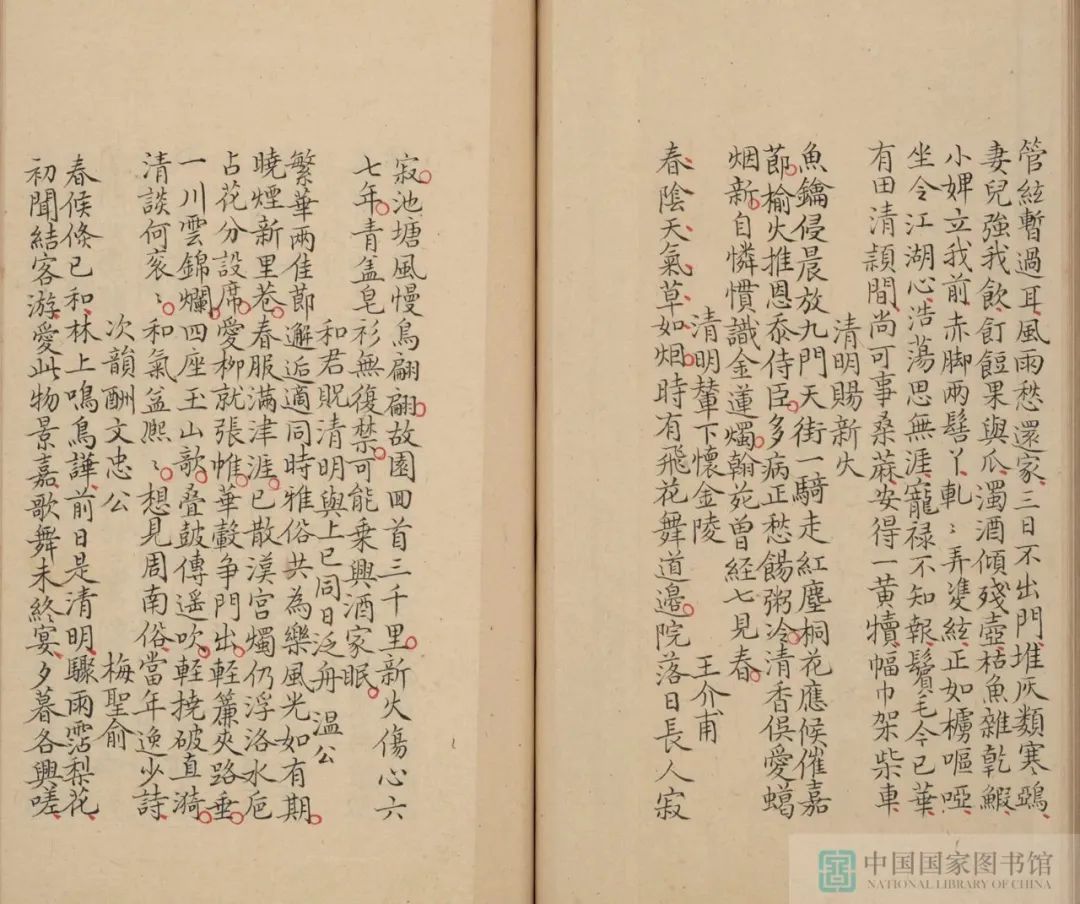 管絃暫過耳風雨愁還家三日不出門堆灰類寒鵶
妻兒強我飲飣餖果與瓜濁酒傾殘壺枯魚雜乾鰕
小婢立我前赤脚兩髻丫軋〻弄䨇絃正如櫓嘔啞
坐令江湖心浩蕩思無涯寵禄不知報鬢毛今已華
有田清潁間尚可事桑蔴安得一黄犢幅巾架柴車
清明賜新火
魚鑰侵晨放九門天街一騎走紅塵桐花應候催嘉
莭榆火推恩忝侍臣多病正愁餳粥冷清香俱愛蠟
烟新自憐慣識金蓮燭翰苑曽経七見春
清明輦下懷金陵 王介甫
春陰天氣草如烟時有飛花舞道邉院落日長人寂
寂池塘風慢鳥翩翩故園回首三千里新火傷心六
七年青盖皂衫無復禁可能乗興酒家眠
和君貺清明與上巳同日泛舟 温公
繁華兩佳莭邂逅適同時雅俗共為樂風光如有期
曉煙新里巷春服滿津涯已散漢宫燭仍浮洛水巵
占花分設席愛柳就張帷華轂争門出軽簾夾路垂
一川雲錦爛四座玉山歌叠鼓傳遥吹軽撓破直漪
清談何衮〻和氣益熙〻想見周南俗當年逸少詩
次韻酬文忠公 梅聖俞
春候倐已和林上鳴鳥譁前日是清明驟雨霑梨花
初聞結客游愛此物景嘉歌舞未終宴夕暮各興嗟
中国国家图书馆
NATIONAL LIBRARY OF CHINA